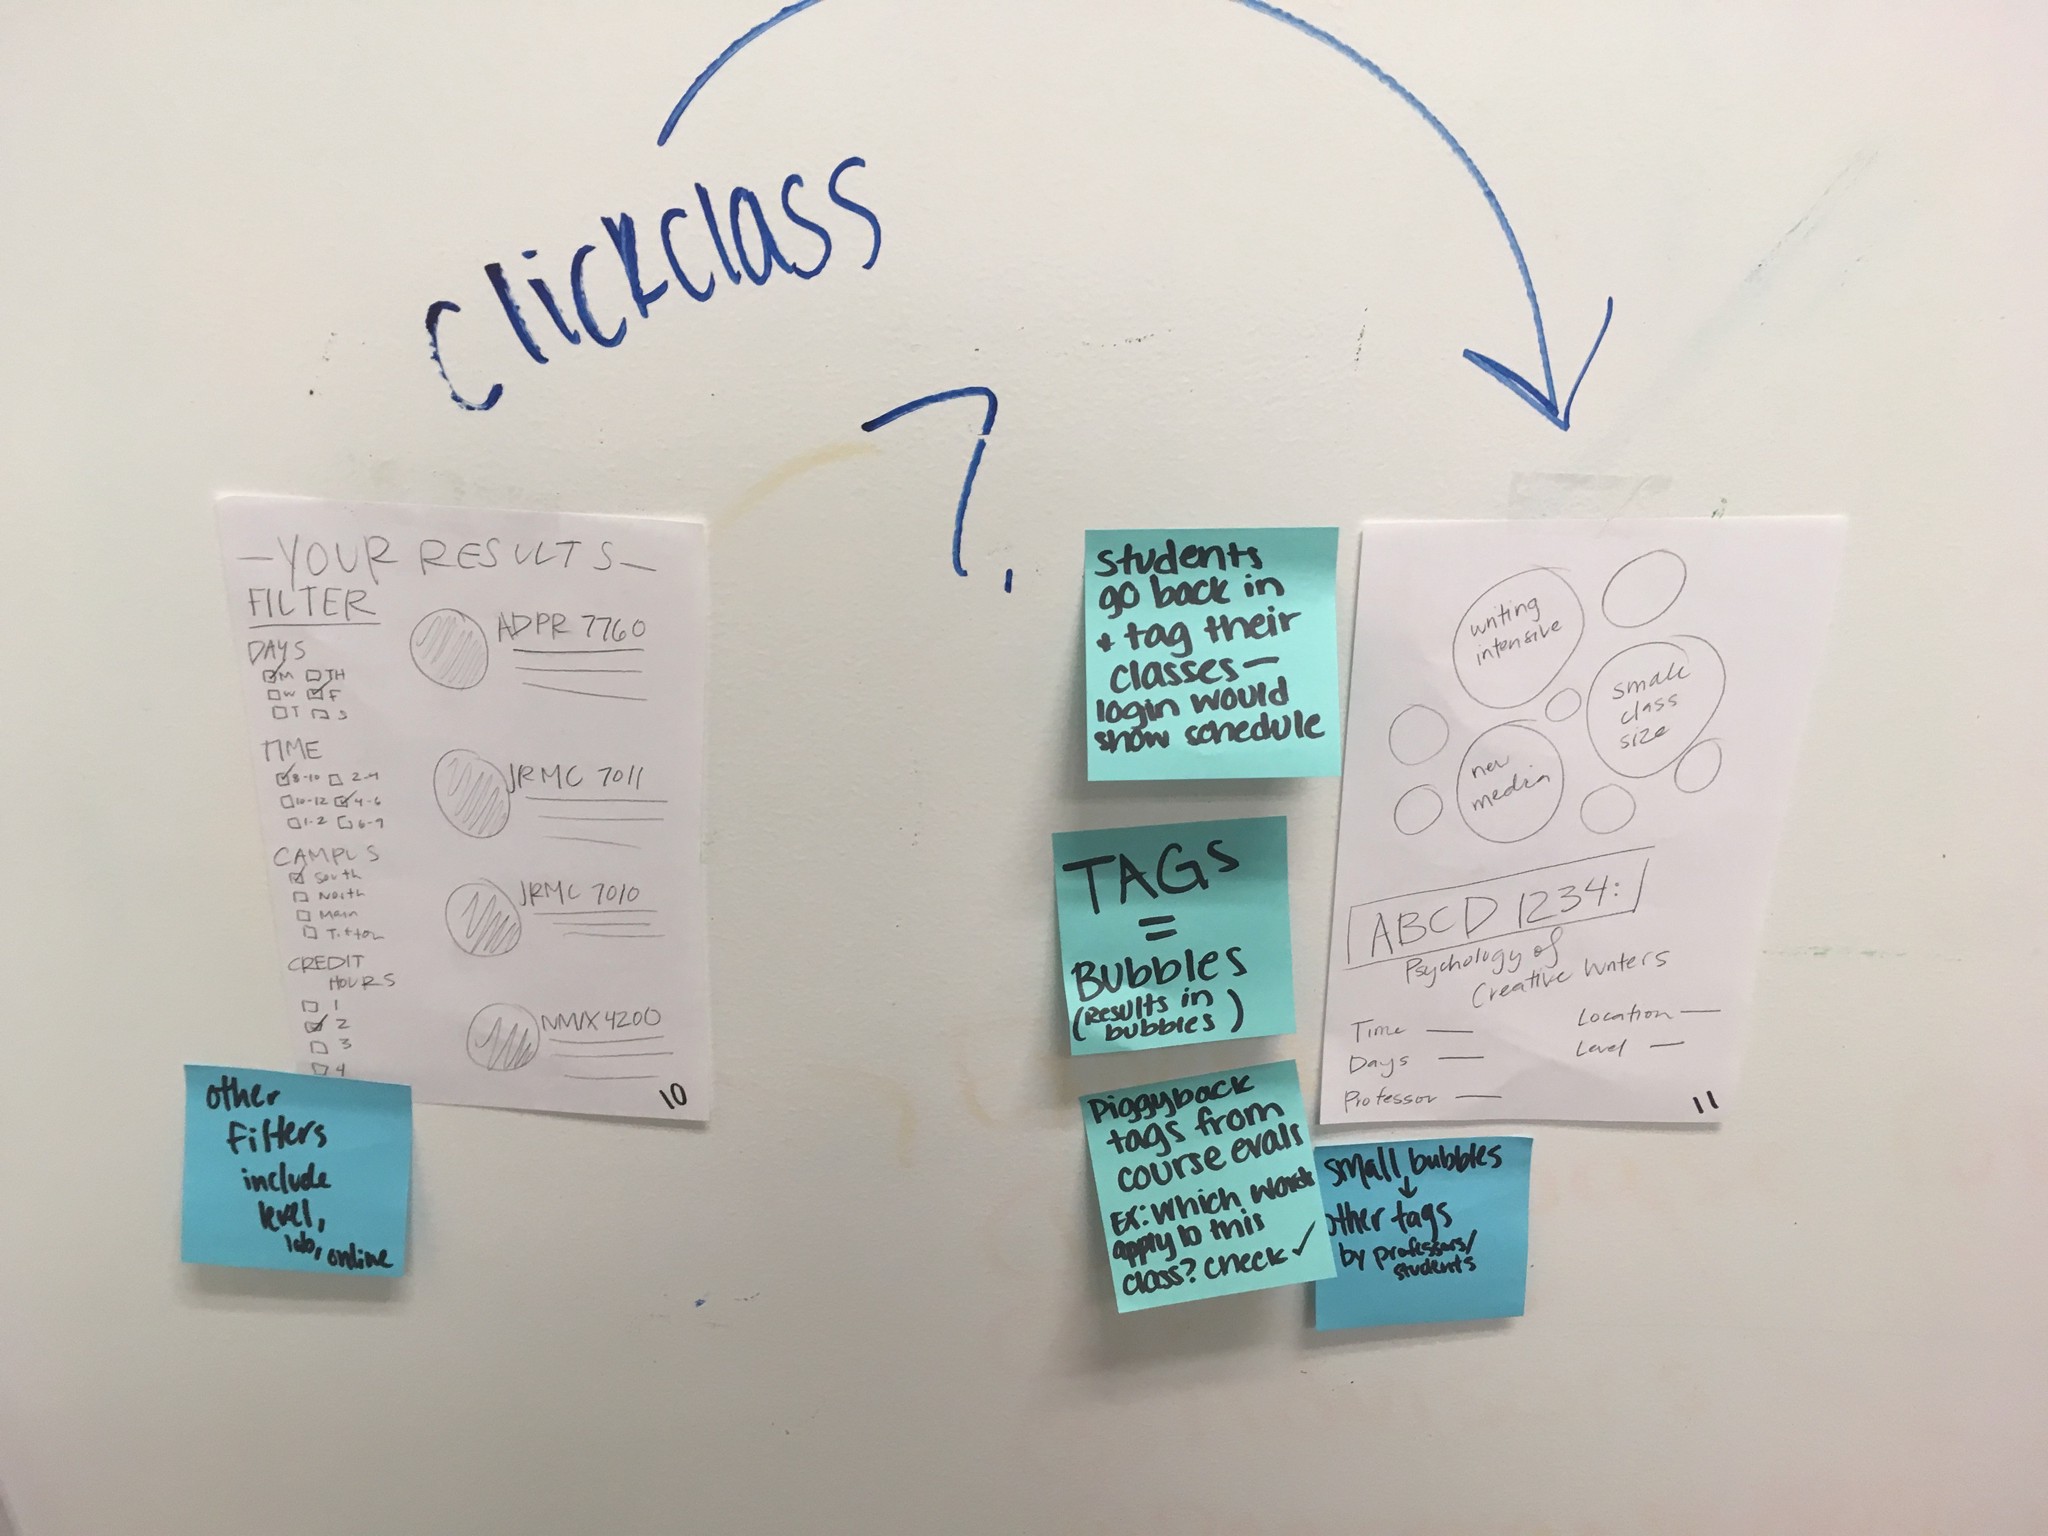 clickclass
?
- YOUR RESULTS -
FILTER
DAYS
M TH
W F
T S
TIME
8-10 2-4
10-12 4-6
1-2 6-9
CAMPUS
South
North
Main
CREDIT
HOURS
1
2
3
4
ADPR 7760
JRMC 7011
JRMC 7010
NMIX 4200
10
other
filters
include
level,
lab, online
Students
go back in
+ tag their
classes—
login would
show schedule
TAGS
=
BUBBLES
(Results in
bubbles)
Piggyback
tags from
course evals
EX: Which words
apply to this
class? check ✓
writing
intensive
small
class
size
new
media
ABCD 1234:
Psychology of
Creative Writers
Time — Location —
Days — Level —
Professor —
11
small bubbles
↓
other tags
by professors/
students